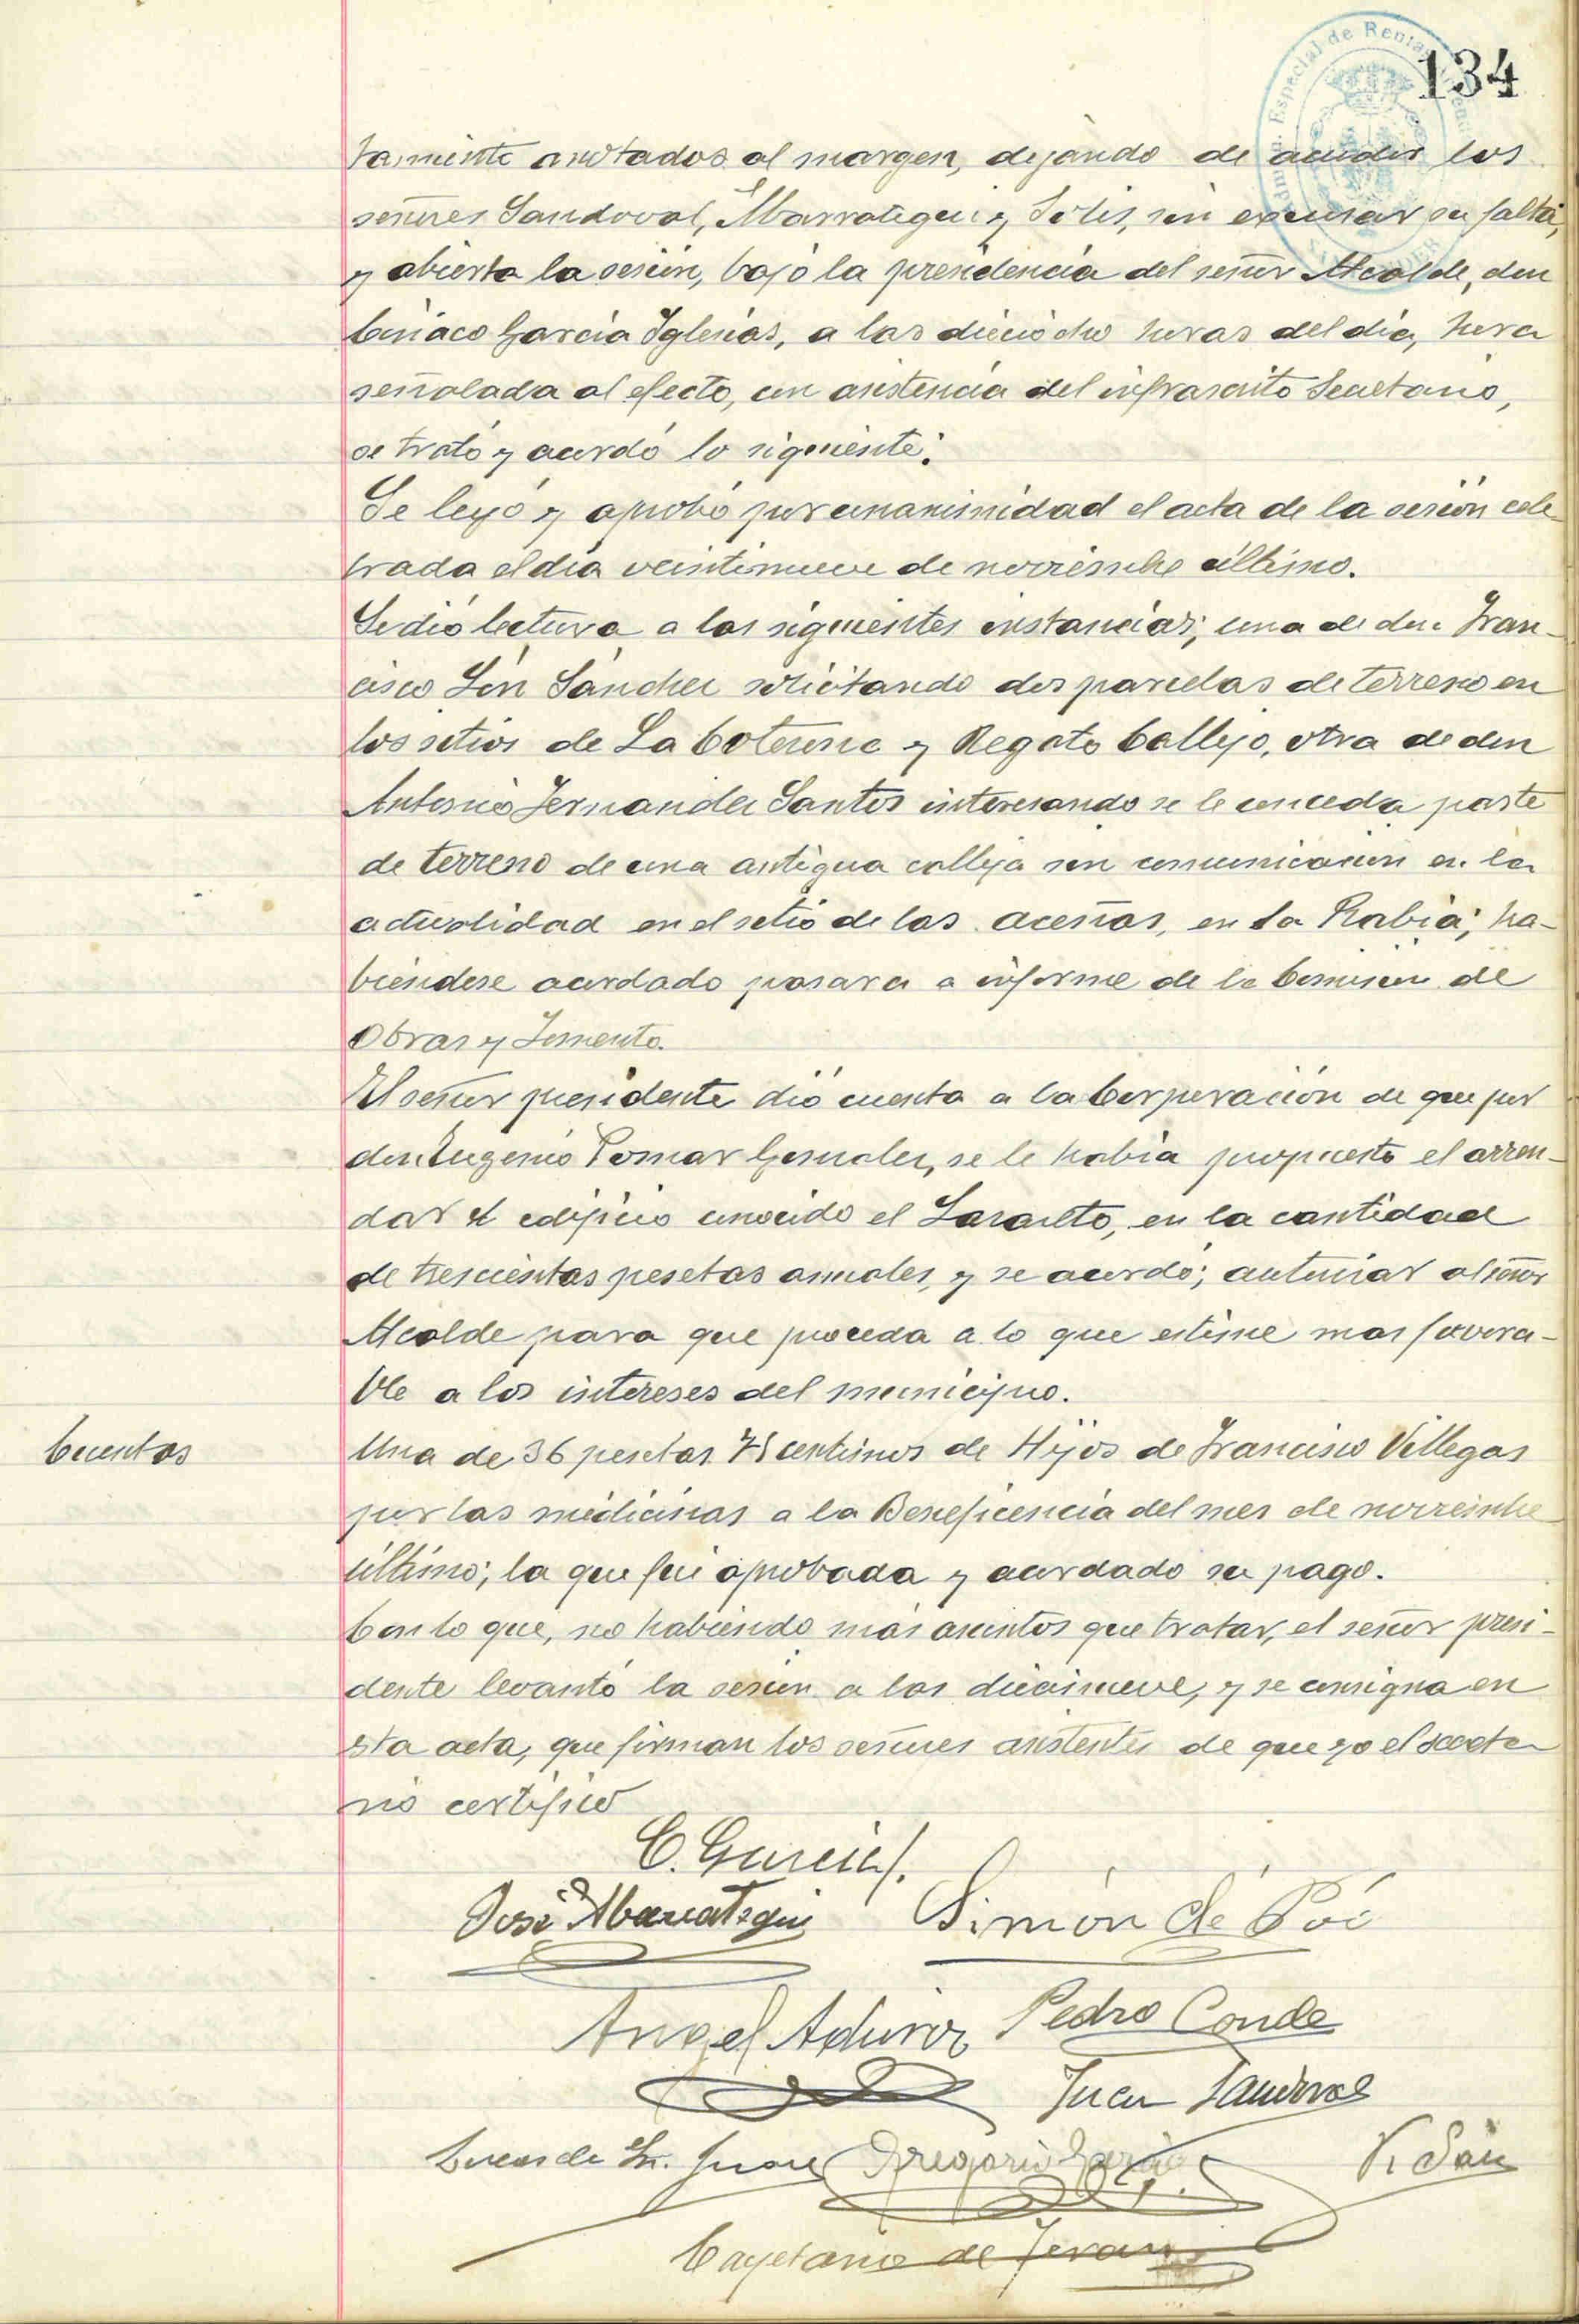 134
tamiento anotados al margen, dejando de acudir los
señores Sandoval, Abarrategui y Solis, sin excusar su falta,
y abierta la sesión, bajo la presidencia del señor Alcalde, don
Ciriaco García Iglesias, a las dieciocho horas del día, hora
señalada al efecto, con asistencia del infrascrito Secretario,
se trató y acordó lo siguiente:
Se leyó y aprobó por unanimidad el acta de la sesión cele-
brada el día veintinueve de noviembre último.
Se dió lectura a las siguientes instancias; una de don Fran-
cisco Sánchez solicitando dos parcelas de terreno en
los sitios de La y Regato Callejo, otra de don
Antonio Fernández Santos interesando se le conceda parte
de terreno de una antigua calleja sin comunicación en la
actualidad en el sitio de las aceñas, en La Rabia; ha-
biéndose acordado pasara a informe de la Comisión de
Obras y Fomento.
El señor presidente dió cuenta a la Corporación de que por
don Eugenio Pomar González, se le había propuesto el arren-
dar el edificio conocido el Lazareto, en la cantidad
de trescientas pesetas anuales, y se acordó; autorizar al señor
Alcalde para que proceda a lo que estime mas favora-
ble a los intereses del municipio.
Cuentas
Una de 36 pesetas 75 centimos de Hijos de Francisco Villegas
por las medicinas a la Beneficencia del mes de noviembre
último; la que fué aprobada y acordado su pago.
Con lo que, no habiendo más asuntos que tratar, el señor presi-
dente levantó la sesión a las diecinueve, y se consigna en
esta acta, que firman los señores asistentes de que yo el secreta
rio certifico
C. García
José Abarrategui Simón de Póo
Angel Aduriz Pedro Conde
Juan Sandoval
Lucas de Gregorio García
Cayetano de Teran